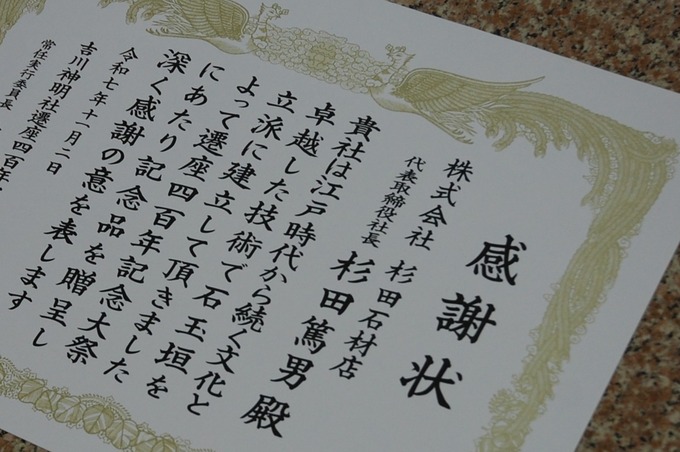 感謝状
株式会社 杉田石材店
代表取締役社長 杉田篤男殿
貴社は江戸時代から続く文化と
卓越した技術で石玉垣を
立派に建立して頂きました
よって遷座四百年記念大祭
にあたり記念品を贈呈し
深く感謝の意を表します
令和七年十一月二日
吉川神明社遷座四百年
常任実行委員長